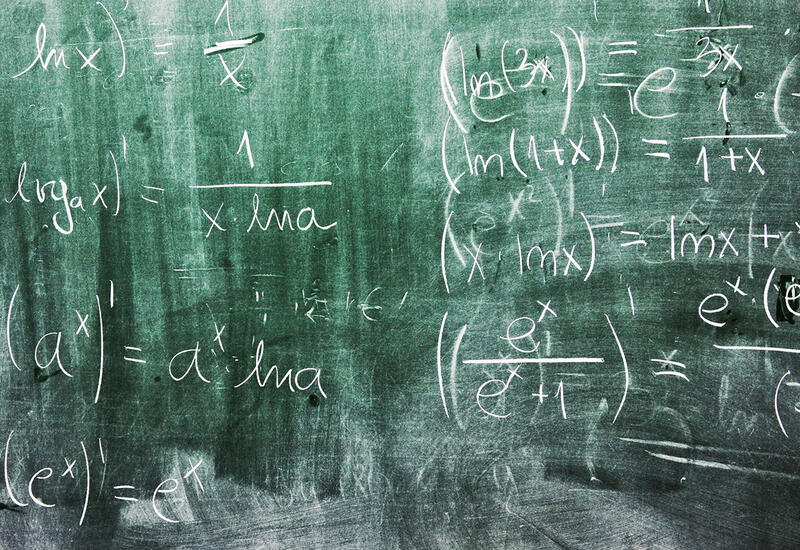 ln x)' = 1/x
log_a x)' = 1/(x · ln a)
(a^x)' = a^x · ln a
(e^x)' = e^x
(ln(3x))' = 1/3x
(ln(1+x))' = 1/(1+x)
(x · ln x)' = ln x + x
(e^x/(e^x+1))' = e^x · (e